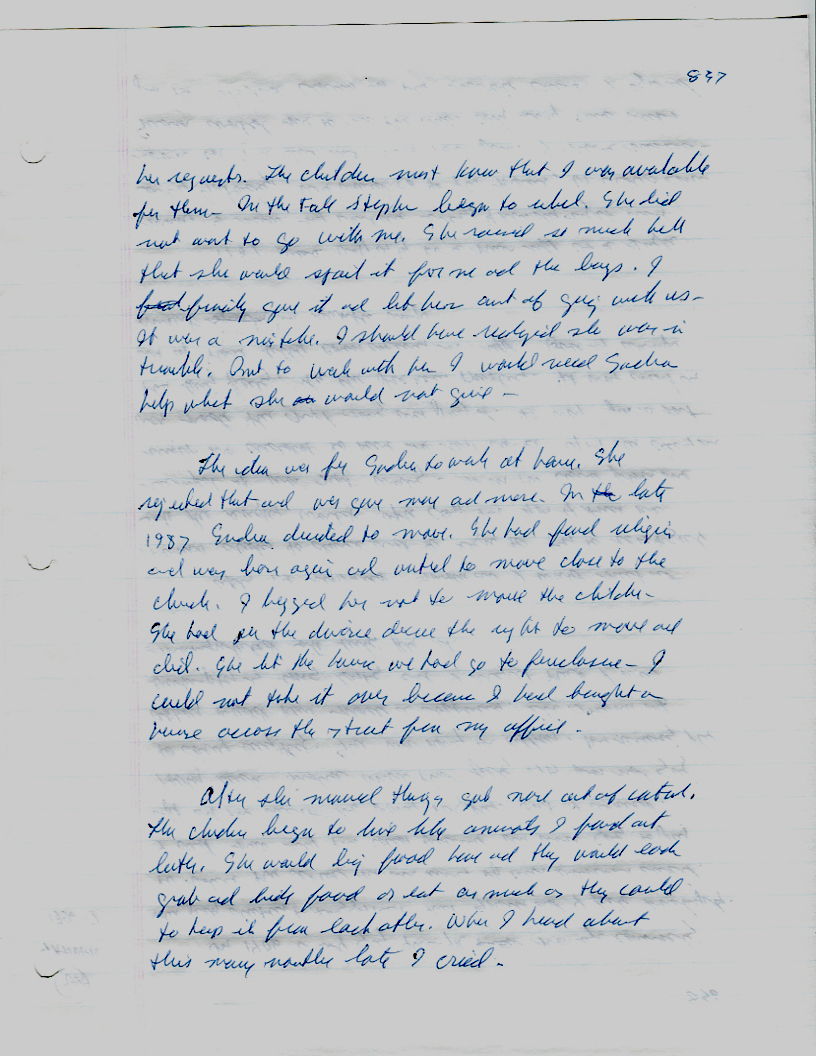 837
her requests. The children must know that I was available
for them - In the Fall Steph began to rebel. She did
not want to go with me. She raised so much hell
that she would spoil it for me and the boys. I
finally gave it and let her out of going with us -
It was a mistake. I should have realized she was in
trouble. But to work with her I would need
help what she would not give -
The idea was for to work at home. She
rejected that and was gone more and more. In late
1987 decided to move. She had found religion
and was born again and wanted to move close to the
church. I begged her not to move the children -
She had per the divorce decree the right to move and
did. She let the house we had go to foreclosure - I
could not take it over because I had bought a
house across the street from my office.
After she moved things got more out of control.
The children began to live like animals I found out
later. She would bring food home and they would each
grab and hide food or eat as much as they could
to keep it from each other. When I heard about
this many months late I cried -